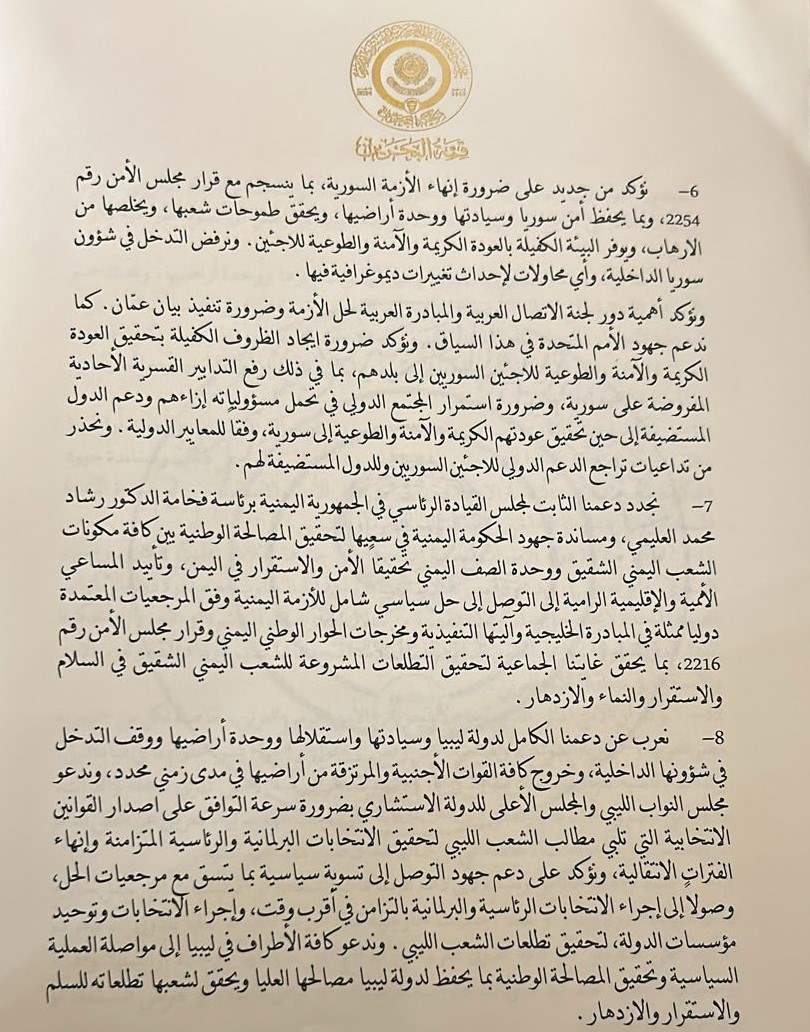 قمة البحرين
6– نؤكد من جديد على ضرورة إنهاء الأزمة السورية، بما ينسجم مع قرار مجلس الأمن رقم
2254، وبما يحفظ أمن سوريا وسيادتها ووحدة أراضيها، ويحقق طموحات شعبها، ويخلصها من
الارهاب، ويوفر البيئة الكفيلة بالعودة الكريمة والآمنة والطوعية للاجئين. ونرفض التدخل في شؤون
سوريا الداخلية، وأي محاولات لإحداث تغييرات ديموغرافية فيها.
ونؤكد أهمية دور لجنة الاتصال العربية والمبادرة العربية لحل الأزمة وضرورة تنفيذ بيان عمّان. كما
ندعم جهود الأمم المتحدة في هذا السياق. ونؤكد ضرورة ايجاد الظروف الكفيلة بتحقيق العودة
الكريمة والآمنة والطوعية للاجئين السوريين إلى بلدهم، بما في ذلك رفع التدابير القسرية الأحادية
المفروضة على سورية، وضرورة استمرار المجتمع الدولي في تحمل مسؤولياته إزاءهم ودعم الدول
المستضيفة إلى حين تحقيق عودتهم الكريمة والآمنة والطوعية إلى سورية، وفقًا للمعايير الدولية. ونحذر
من تداعيات تراجع الدعم الدولي للاجئين السوريين وللدول المستضيفة لهم.
7– نجدد دعمنا الثابت لمجلس القيادة الرئاسي في الجمهورية اليمنية برئاسة فخامة الدكتور رشاد
محمد العليمي، ومساندة جهود الحكومة اليمنية في سعيها لتحقيق المصالحة الوطنية بين كافة مكونات
الشعب اليمني الشقيق ووحدة الصف اليمني تحقيقا الأمن والاستقرار في اليمن، وتأييد المساعي
الأممية والإقليمية الرامية إلى التوصل إلى حل سياسي شامل للأزمة اليمنية وفق المرجعيات المعتمدة
دوليا ممثلة في المبادرة الخليجية وآليتها التنفيذية ومخرجات الحوار الوطني اليمني وقرار مجلس الأمن رقم
2216، بما يحقق غايتنا الجماعية لتحقيق التطلعات المشروعة للشعب اليمني الشقيق في السلام
والاستقرار والنماء والازدهار.
8– نعرب عن دعمنا الكامل لدولة ليبيا وسيادتها واستقلالها ووحدة أراضيها ووقف التدخل
في شؤونها الداخلية، وخروج كافة القوات الأجنبية والمرتزقة من أراضيها في مدى زمني محدد، وندعو
مجلس النواب الليبي والمجلس الأعلى للدولة الاستشاري بضرورة سرعة التوافق على اصدار القوانين
الانتخابية التي تلبي مطالب الشعب الليبي لتحقيق الانتخابات البرلمانية والرئاسية المتزامنة وإنهاء
الفترات الانتقالية، ونؤكد على دعم جهود التوصل إلى تسوية سياسية بما يتسق مع مرجعيات الحل،
وصولا إلى إجراء الانتخابات الرئاسية والبرلمانية بالتزامن في أقرب وقت، وإجراء الانتخابات وتوحيد
مؤسسات الدولة، لتحقيق تطلعات الشعب الليبي. وندعو كافة الأطراف في ليبيا إلى مواصلة العملية
السياسية وتحقيق المصالحة الوطنية بما يحفظ لدولة ليبيا مصالحها العليا ويحقق لشعبها تطلعاته للسلم
والاستقرار والازدهار.